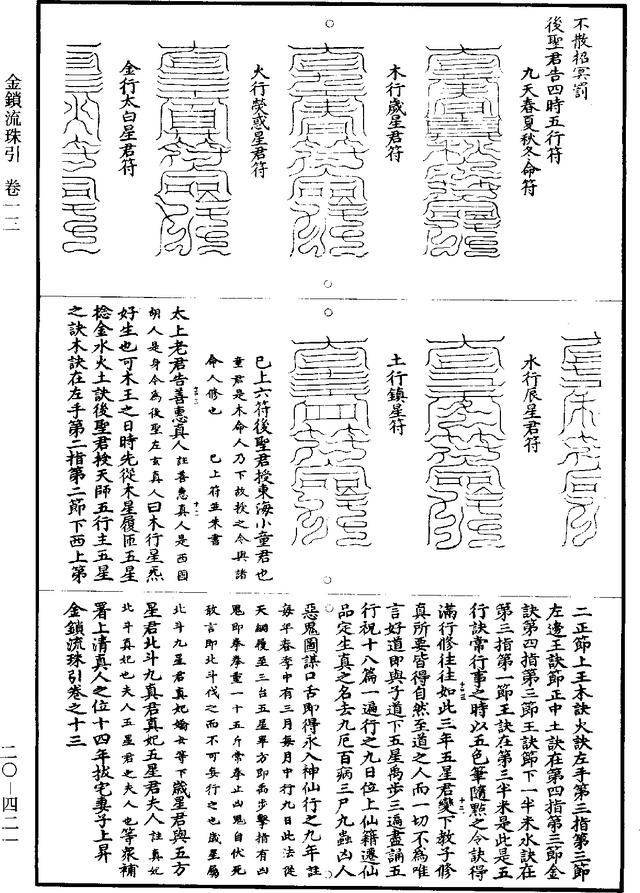 不散招冥罰
後聖君告四時五行符
九天春夏秋冬命符
木行歲星君符
火行熒惑星君符
金行太白星君符
水行辰星君符
土行鎮星符
已上六符後聖君授東海小童君也
童君是木命人乃下故授之令與諸
命人修也　已上符並朱書
太上老君告善惠真人註善惠真人是西國
胡人是身令為後聖左玄真人曰木行星炁
好生也可木王之日時先從木星履匝五星
捻金水火土訣後聖君授天師五行主五星
之訣木訣在左手第二指第二節下西上第
二正節上王木訣火訣左手第三指第三節
左邊王訣節正中土訣在第四指第三節金
訣第四指第三節王訣節下一半米水訣在
第三指第一節王訣在第三半米是此是五
行訣常行事之時以五色筆隨點之令訣得
滿行修往往如此三年五星君變下教子修
真所要皆得自然至道之人而一切不為唯
言好道即與子道下五星禹步三遍盡誦五
行祝十八篇一遍行之九日位上仙籍遷仙
品定生真之名去九厄百病三尸九蟲凶人
惡鬼圖謀口舌即得永入神仙行之九年註
每年春季中有三月每月中行九日此法從
天綱履至三台五星畢方即禹步擊指有凶
鬼即拳拳重一十五斤常拳止凶鬼自伏死
故言即北斗伐之而不可妄行之也歲星屬
北斗九星君真妃嬌女等下歲星君與五方
星君北斗九真君真妃五星君夫人註真妃
北斗真妃也夫人五星君之夫人也等眾補
署上清真人之位十四年拔宅妻子上昇
金鎖流珠引卷之十三
金鎖流珠引　卷一三
二〇—四二一